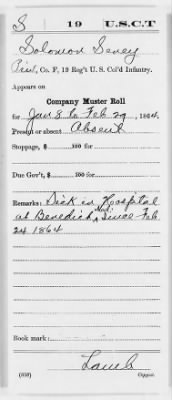 S 19 U.S.C.T
Solomon Seney
Priv., Co. F, 19 Reg't U. S. Col'd Infantry.
Appears on
Company Muster Roll
for Jan 8 to Feb 29, 1864.
Present or absent Absent
Stoppage, $ 100 for
Due Gov't, $ 100 for
Remarks: Sick in Hospital
at Benedict Md. since Feb
24 1864
Book mark:
Lamb
(358) Copyist.